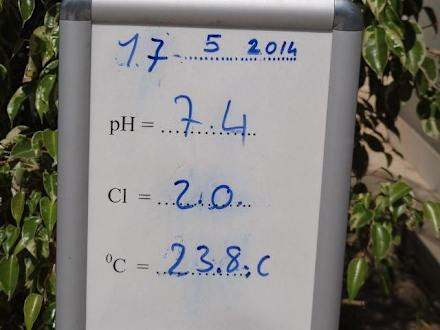 17 5 2014
pH = 7.4
Cl = 2.0.
⁰C = 23.8.c